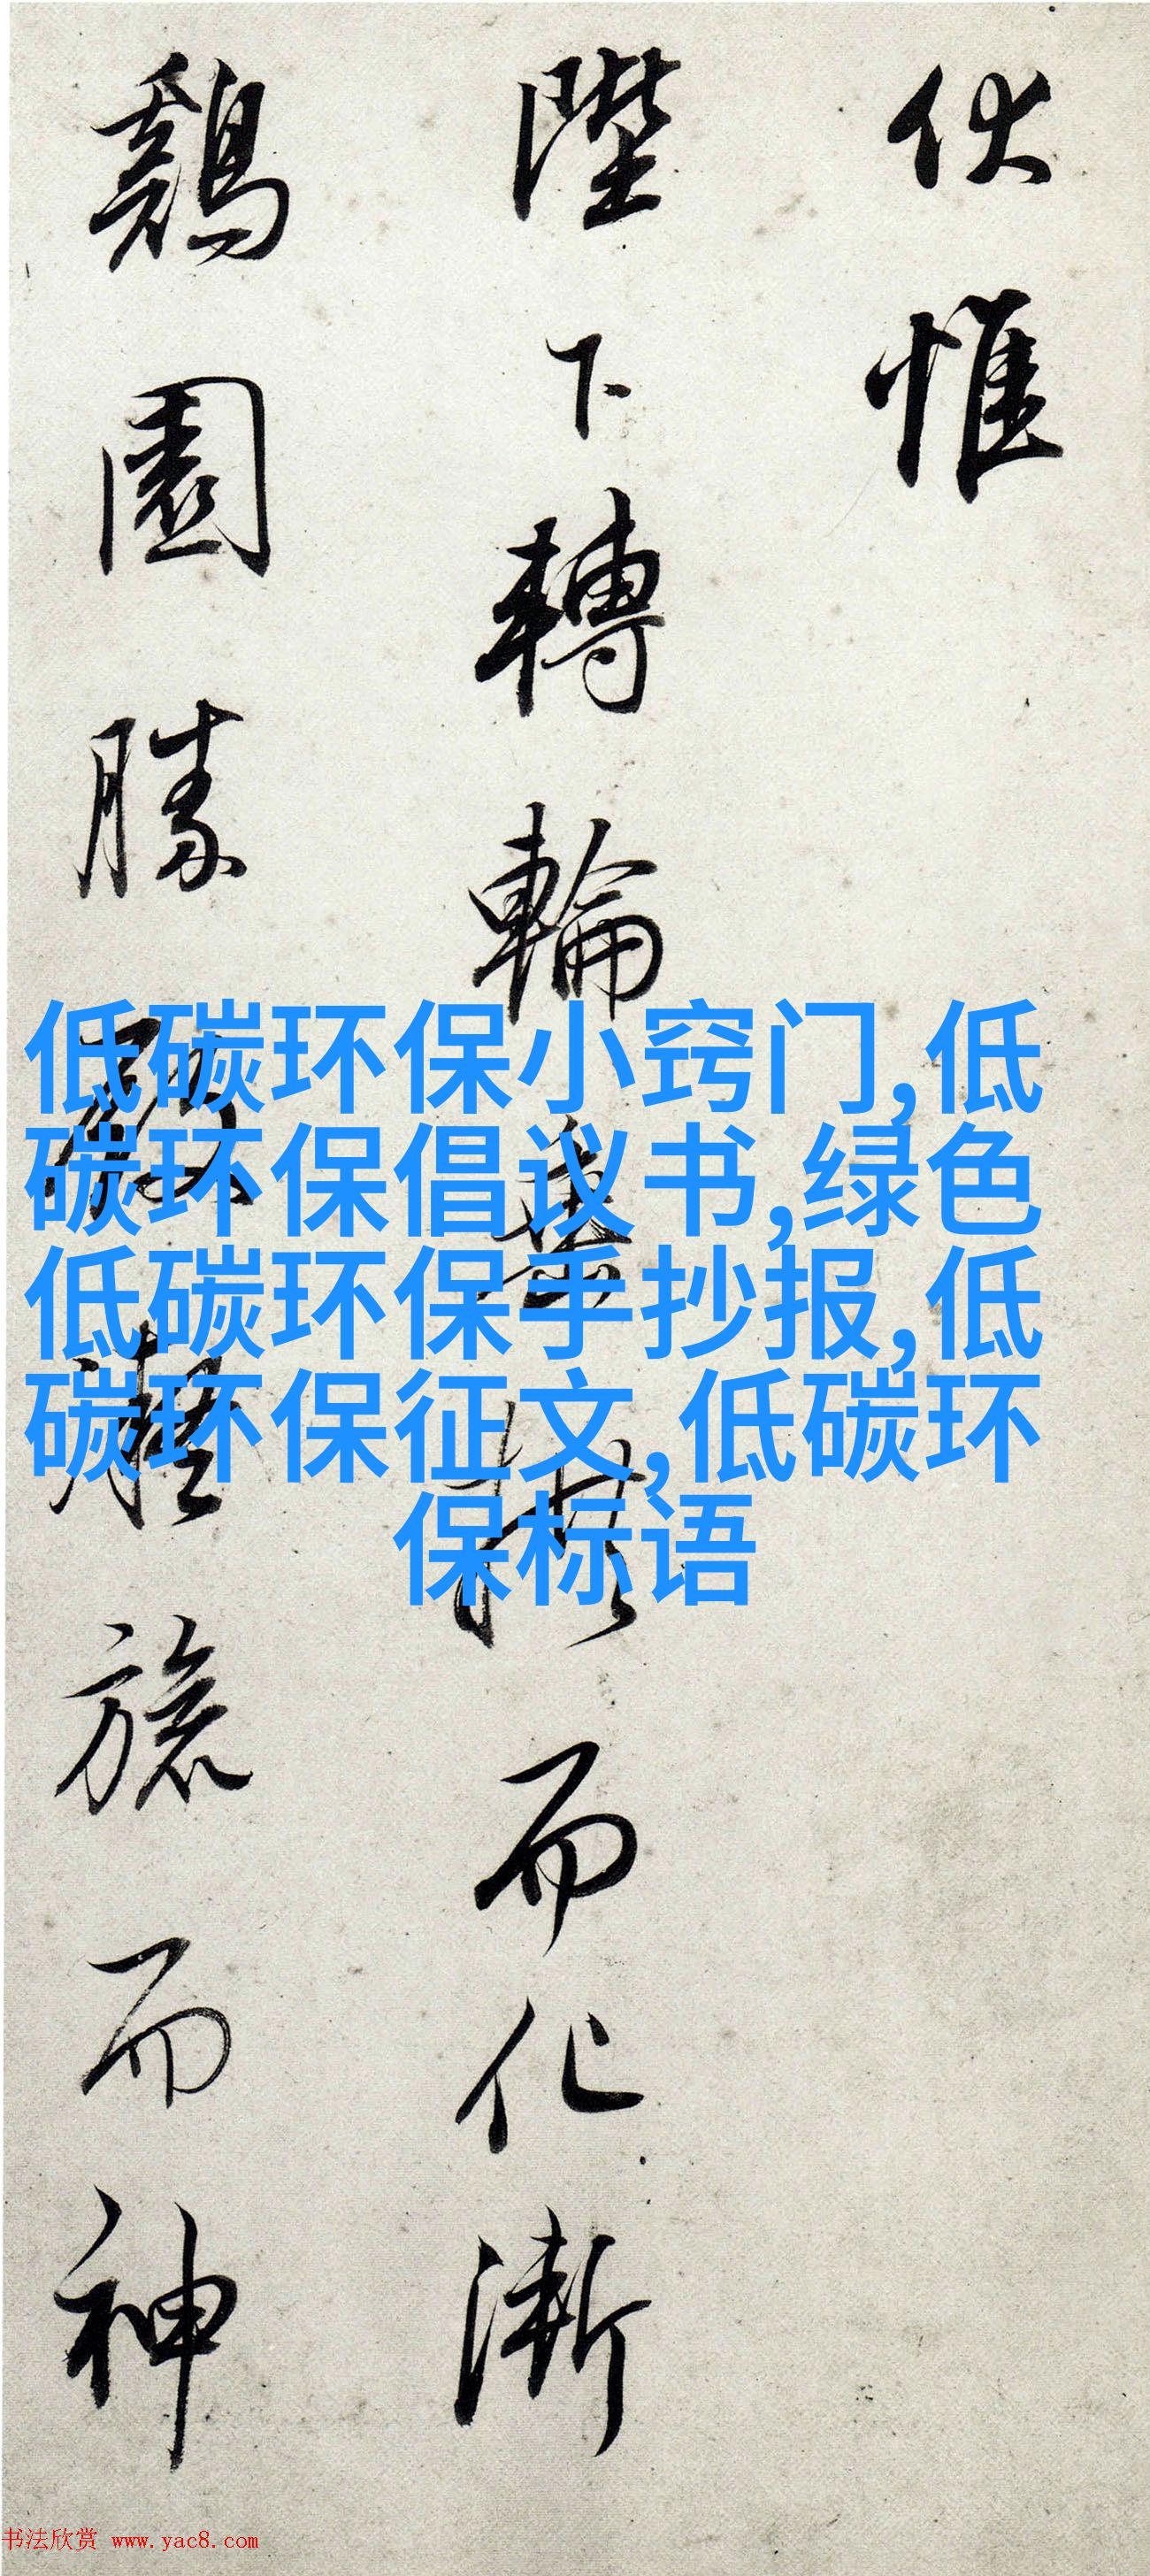 伏惟
陛下轉輪垂拱而化漸
鷄園勝殿凝旒而神
低碳环保小窍门,低
碳环保倡议书,绿色
低碳环保手抄报,低
碳环保征文,低碳环
保标语
书法欣赏 www.yac8.com